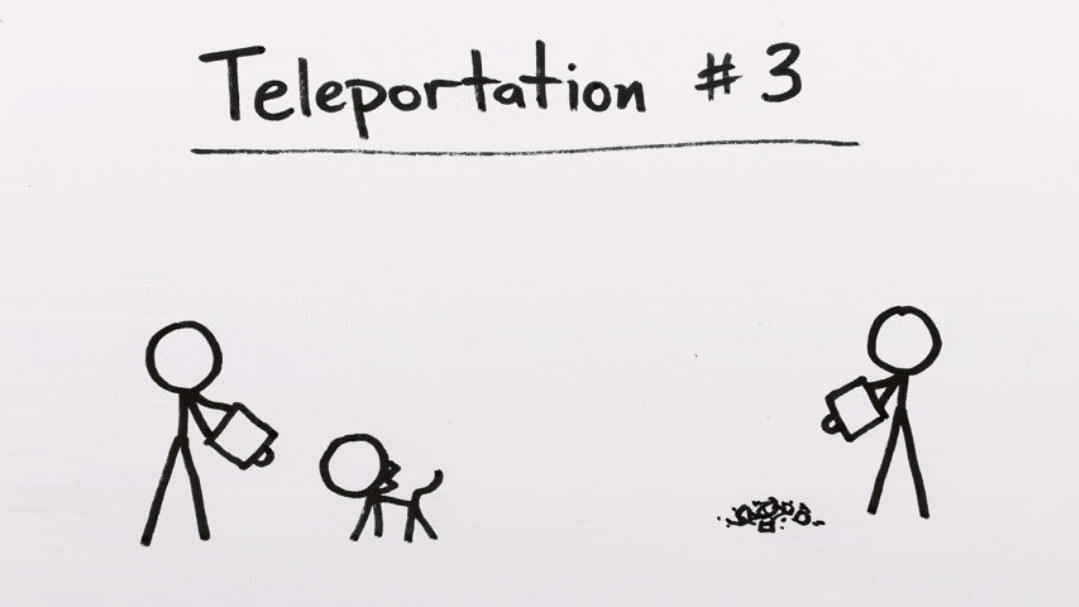 Teleportation #3